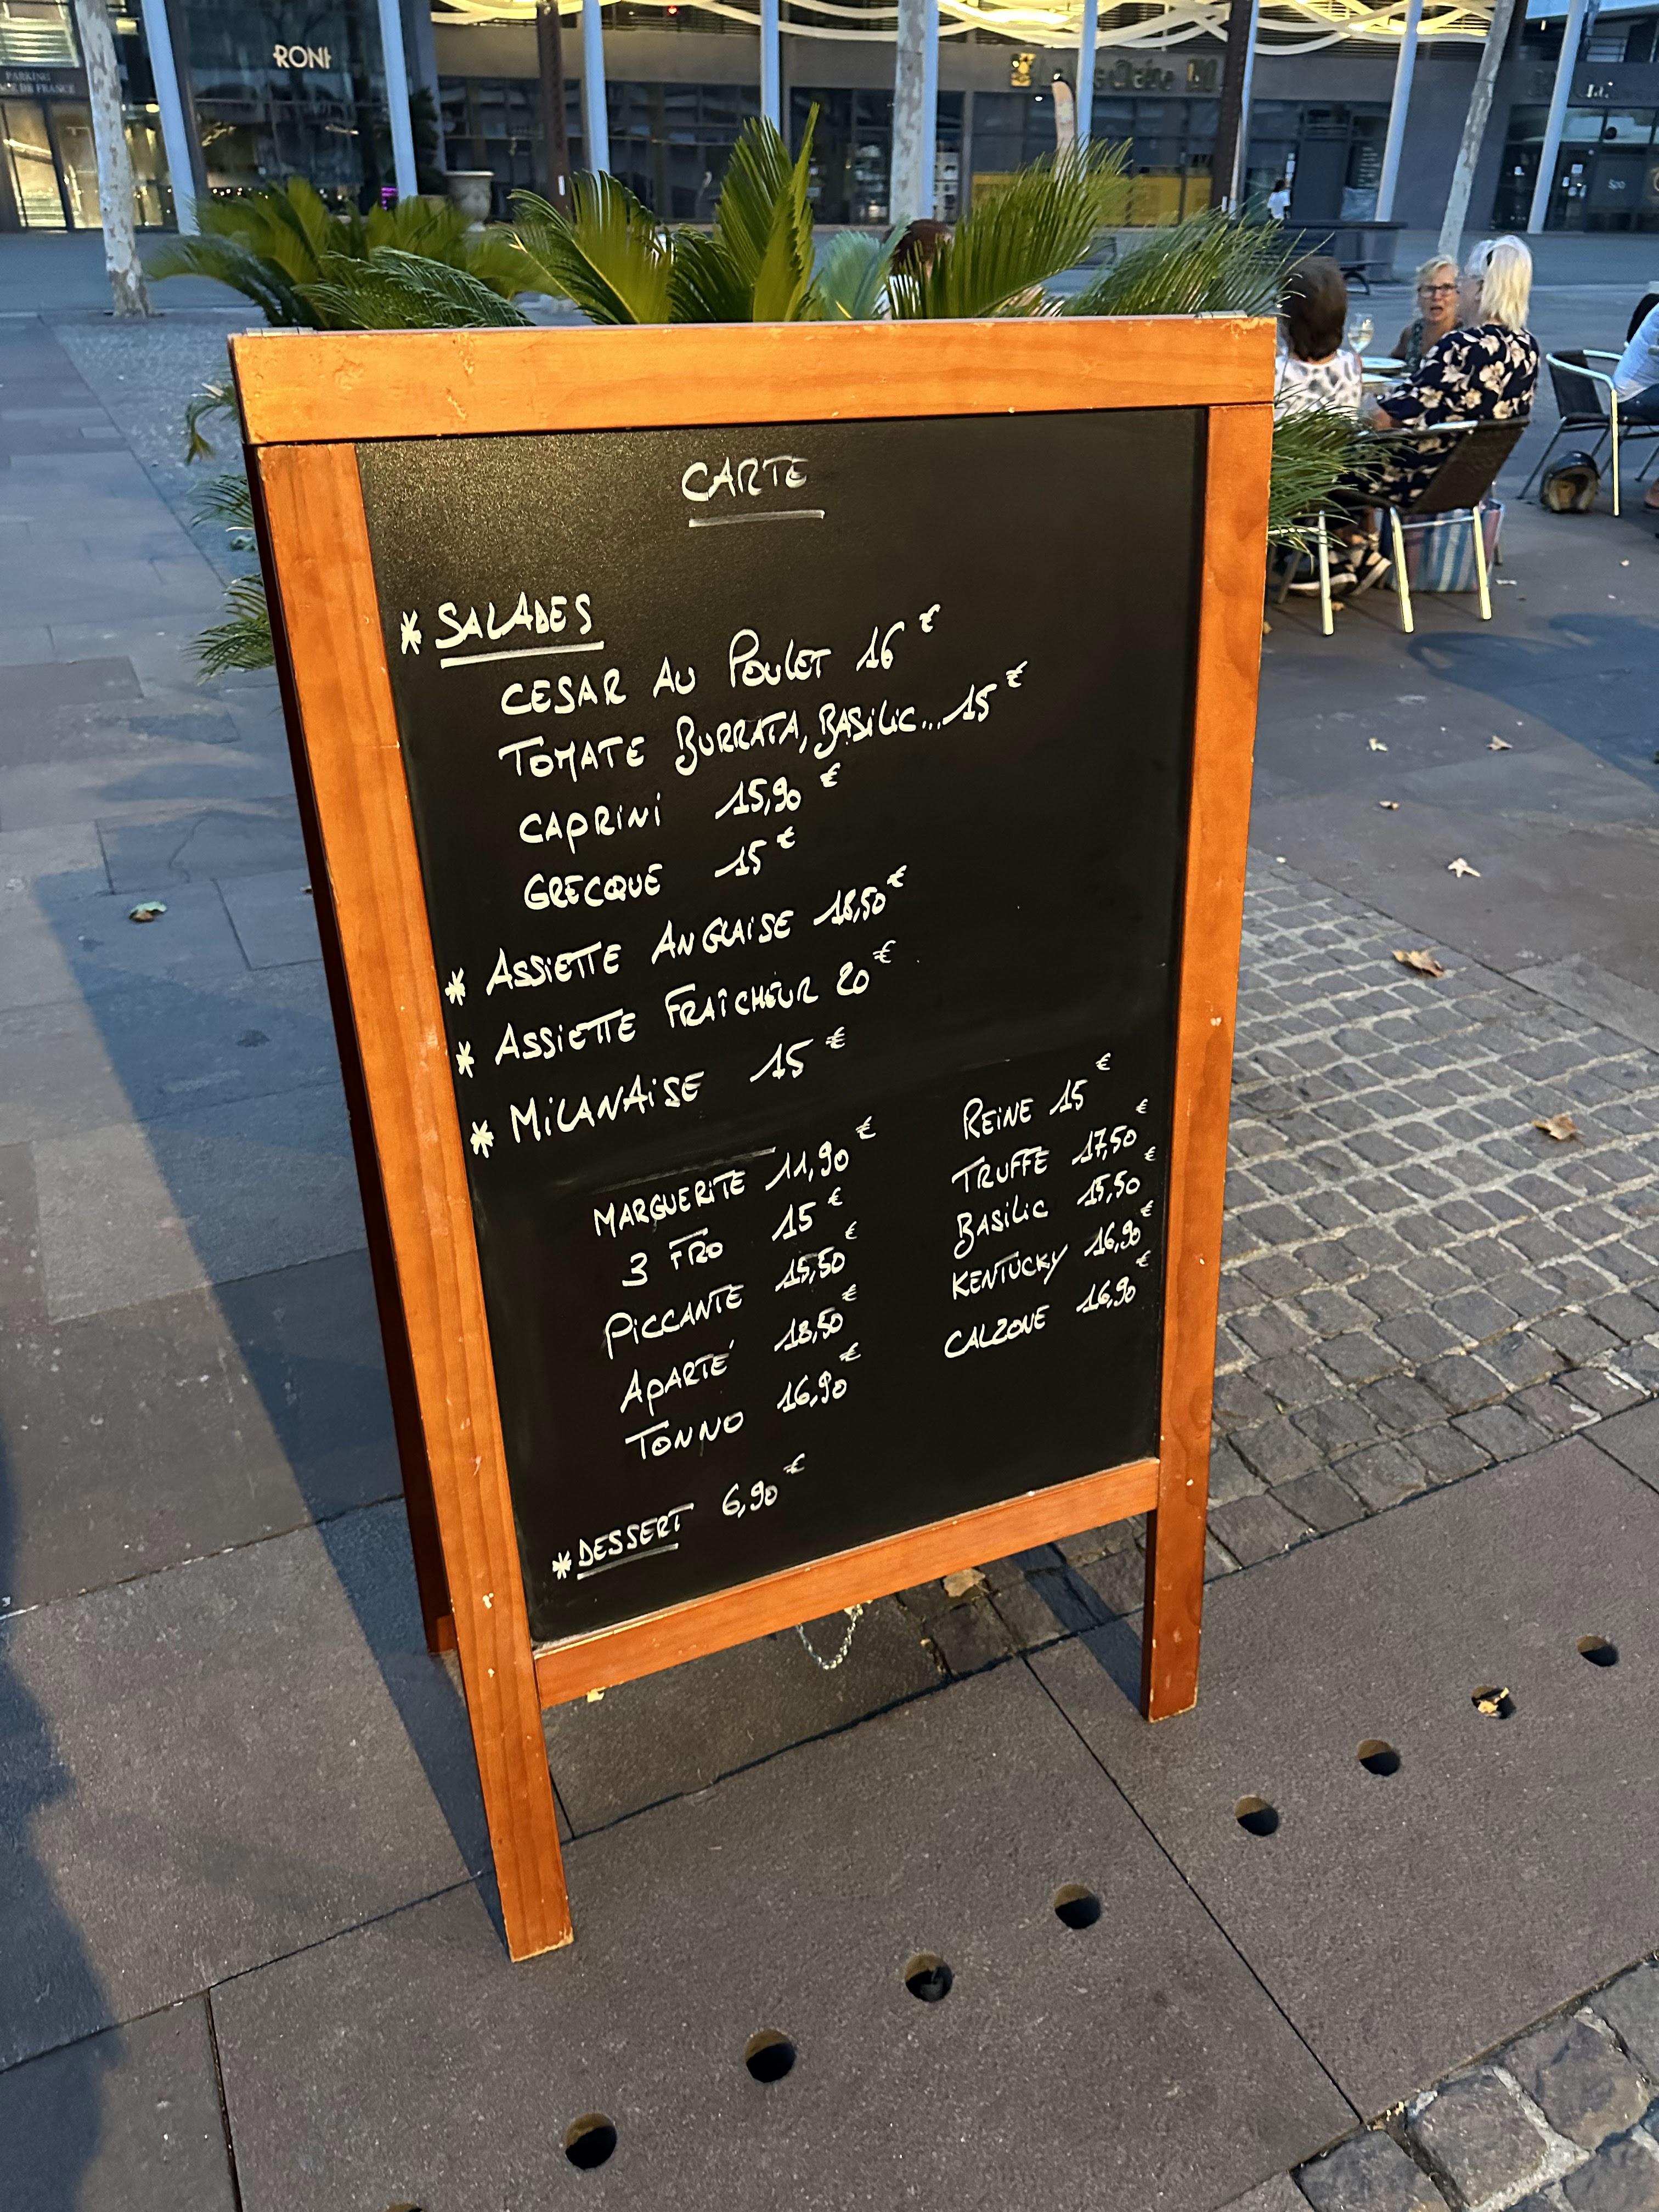 RONI
PARKING
CARTE
* SALADES
CESAR AU POULET 16 €
TOMATE BURRATA, BASILIC... 15 €
CAPRINI 15,90 €
GRECQUE 15 €
* ASSIETTE ANGLAISE 18,50 €
* ASSIETTE FRAÎCHEUR 20 €
* MILANAISE 15 €
MARGUERITE 11,90 €
3 FRO 15 €
PICCANTE 15,50 €
APARTÉ 18,50 €
TONNO 16,90 €
REINE 15 €
TRUFFE 17,50 €
BASILIC 15,50 €
KENTUCKY 16,90 €
CALZONE 16,90 €
* DESSERT 6,90 €